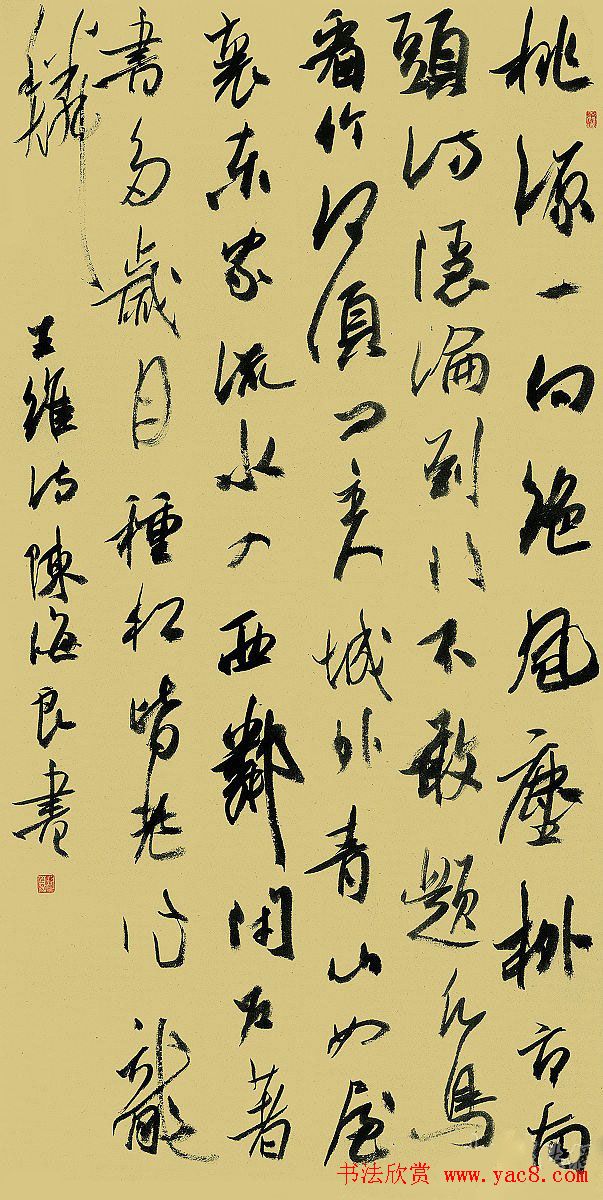 桃源一向絕風塵柳市南
頭訪隱淪到門不敢題凡鳥
看竹何須問主人城外青山如屋
裏東家流水入西鄰閉戶著
書多歲月種松皆老作龍
鱗
王維詩陳海良書
书法欣赏 www.yac8.com